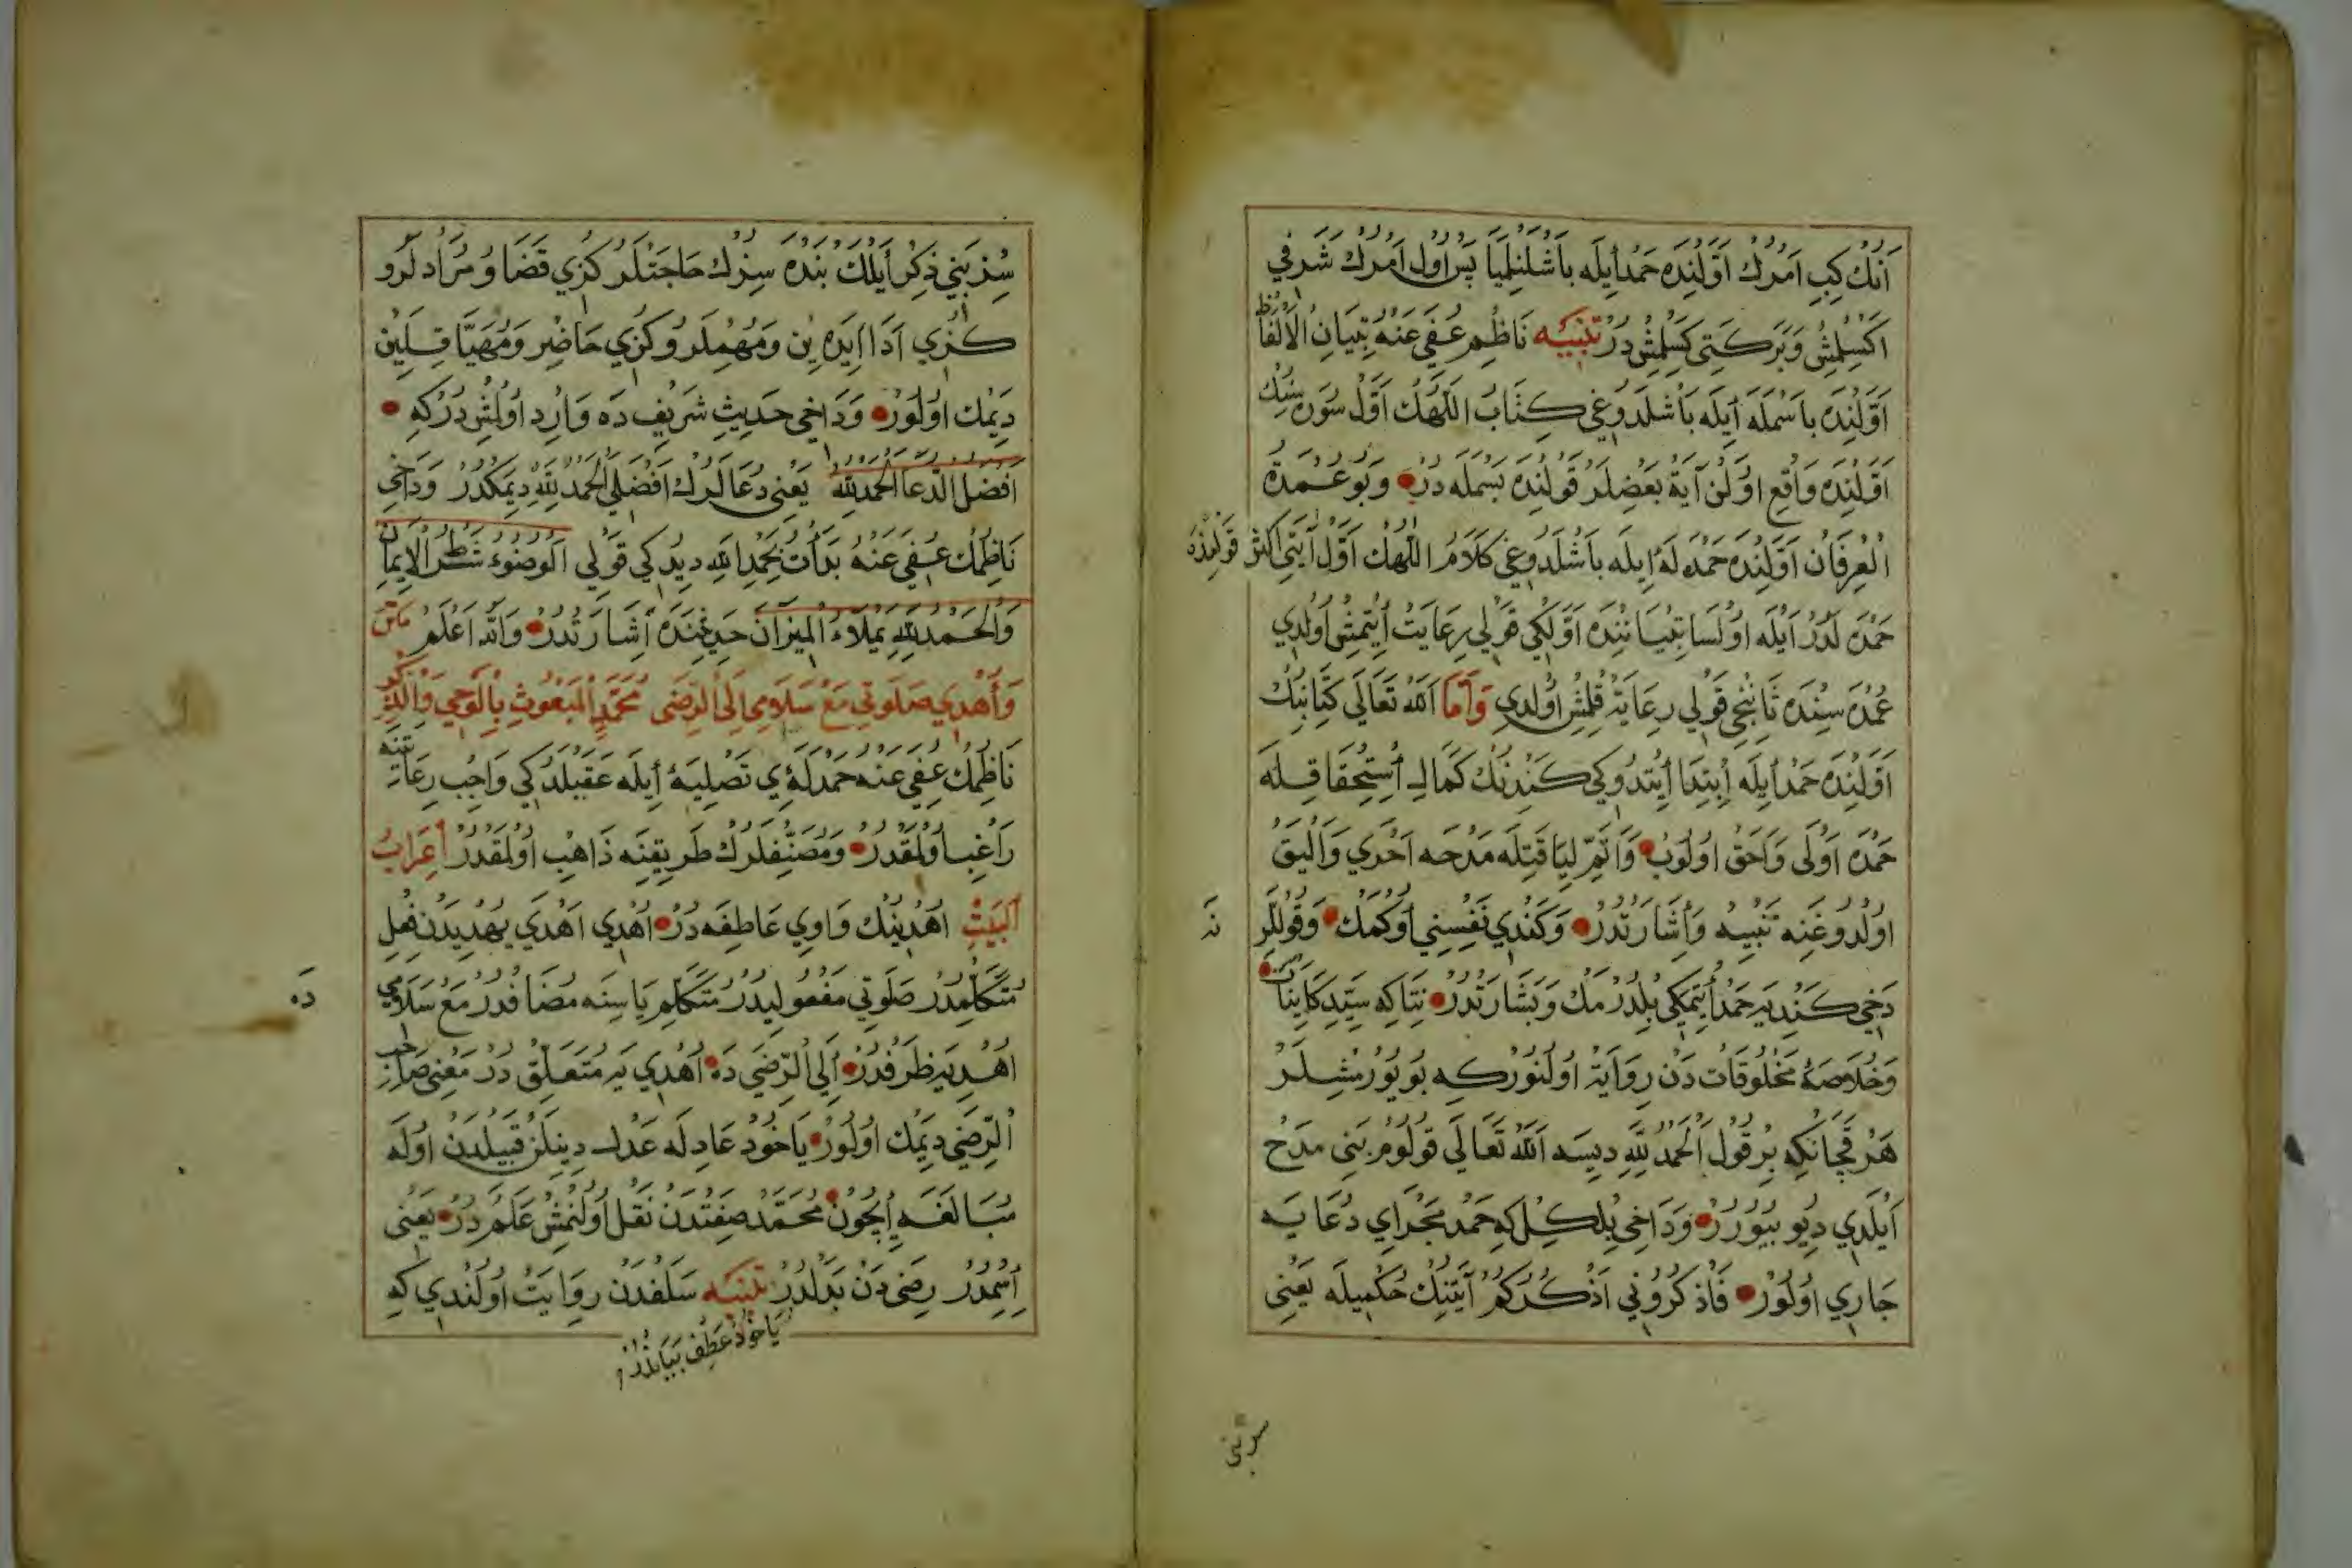 أنك كبي أمرك أولنده حمد أيله باشلنلميا پس أول أمرك شرفي
اكسلمش وبركتي كسلمش در تنبيه ناظم عفي عنه تبيان الألفاظ
أولنده باسمله أيله باشلدوغي كتاب اللهك أول سوره سنك
أولنده واقع اولن آية بعضلر قولنده بسمله در وبو عمدة
العرفان أولنده حمدله أيله باشلدوغي كلام اللهك أول آيتي اكثر قولنده
حمدلدر أيله اولسا تبيانده أولكي قولي رعايت أيتمش أولدي
عمده سنده ثانينجي قولي رعاية قلمش أولدي وأما الله تعالى كتابنك
أولنده حمد أيله أبتدا أيتدوكي كندنك كمال أستحقاقله
حمده أولى وأحق اولوب وأتم لياقتله مدحه أحرى وأليق
اولدوغنه تنبيه وأشارتدر وكندي نفسني أوكمك وقوللر نه
دخي كنديه حمد أيتمكي بلدرمك وبشارتدر نتاكه سيد كاينات
وخلاصة مخلوقات دن رواية اولنور كه بويورمشلر
هر قچانكه بر قول الحمد لله ديسه الله تعالى قولوم بني مدح
أيلدي ديو بيورر وداخي بلكل كه حمد مجراي دعايه
جاري اولور فاذكروني أذكركم آيتنك حكميله يعني
سز بني
سز بني ذكر أيلك بنده سزك حاجتلركزي قضا ومرادلرو
كزي أدا ايده ين ومهملروكزي حاضر ومهيا قيلين
ديمك اولور وداخي حديث شريف ده وارد اولمشدركه
افضل الدعا الحمد لله يعني دعالرك افضلي الحمد لله ديمكدر وداخي
ناظمك عفي عنه بدأت بحمد الله ديدكي قولي الوضوء شطر الإيمان
والحمد لله يملاء الميزان حديثنده أشارتدر والله اعلم متن
وأهدي صلوتي مع سلامي الى الرضى محمد المبعوث بالوحي والذكر
ناظمك عفي عنه حمدلة ي تصليه أيله عقبلدكي واجب رعايتنه
راغب اولمقدر ومصنفلرك طريقنه ذاهب اولمقدر أعراب
البيت اهدينك واوي عاطفه در أهدي اهدى يهديدن فعل
متكلمدر صلوتي مفعوليدر متكلم ياسنه مضافدر مع سلامي ده
أهديه ظرفدر ألى الرضي ده أهدي يه متعلق در معني صاحب
الرضي ديمك اولور يا خود عادله عدل دينلن قبيلدن اوله
مبالغه أچون محمد صفتدن نقل اولنمش علم در يعني
أسمدر رضى دن بدلدر تنبيه سلفدن روايت اولندي كه
يا خود عطف بياندر